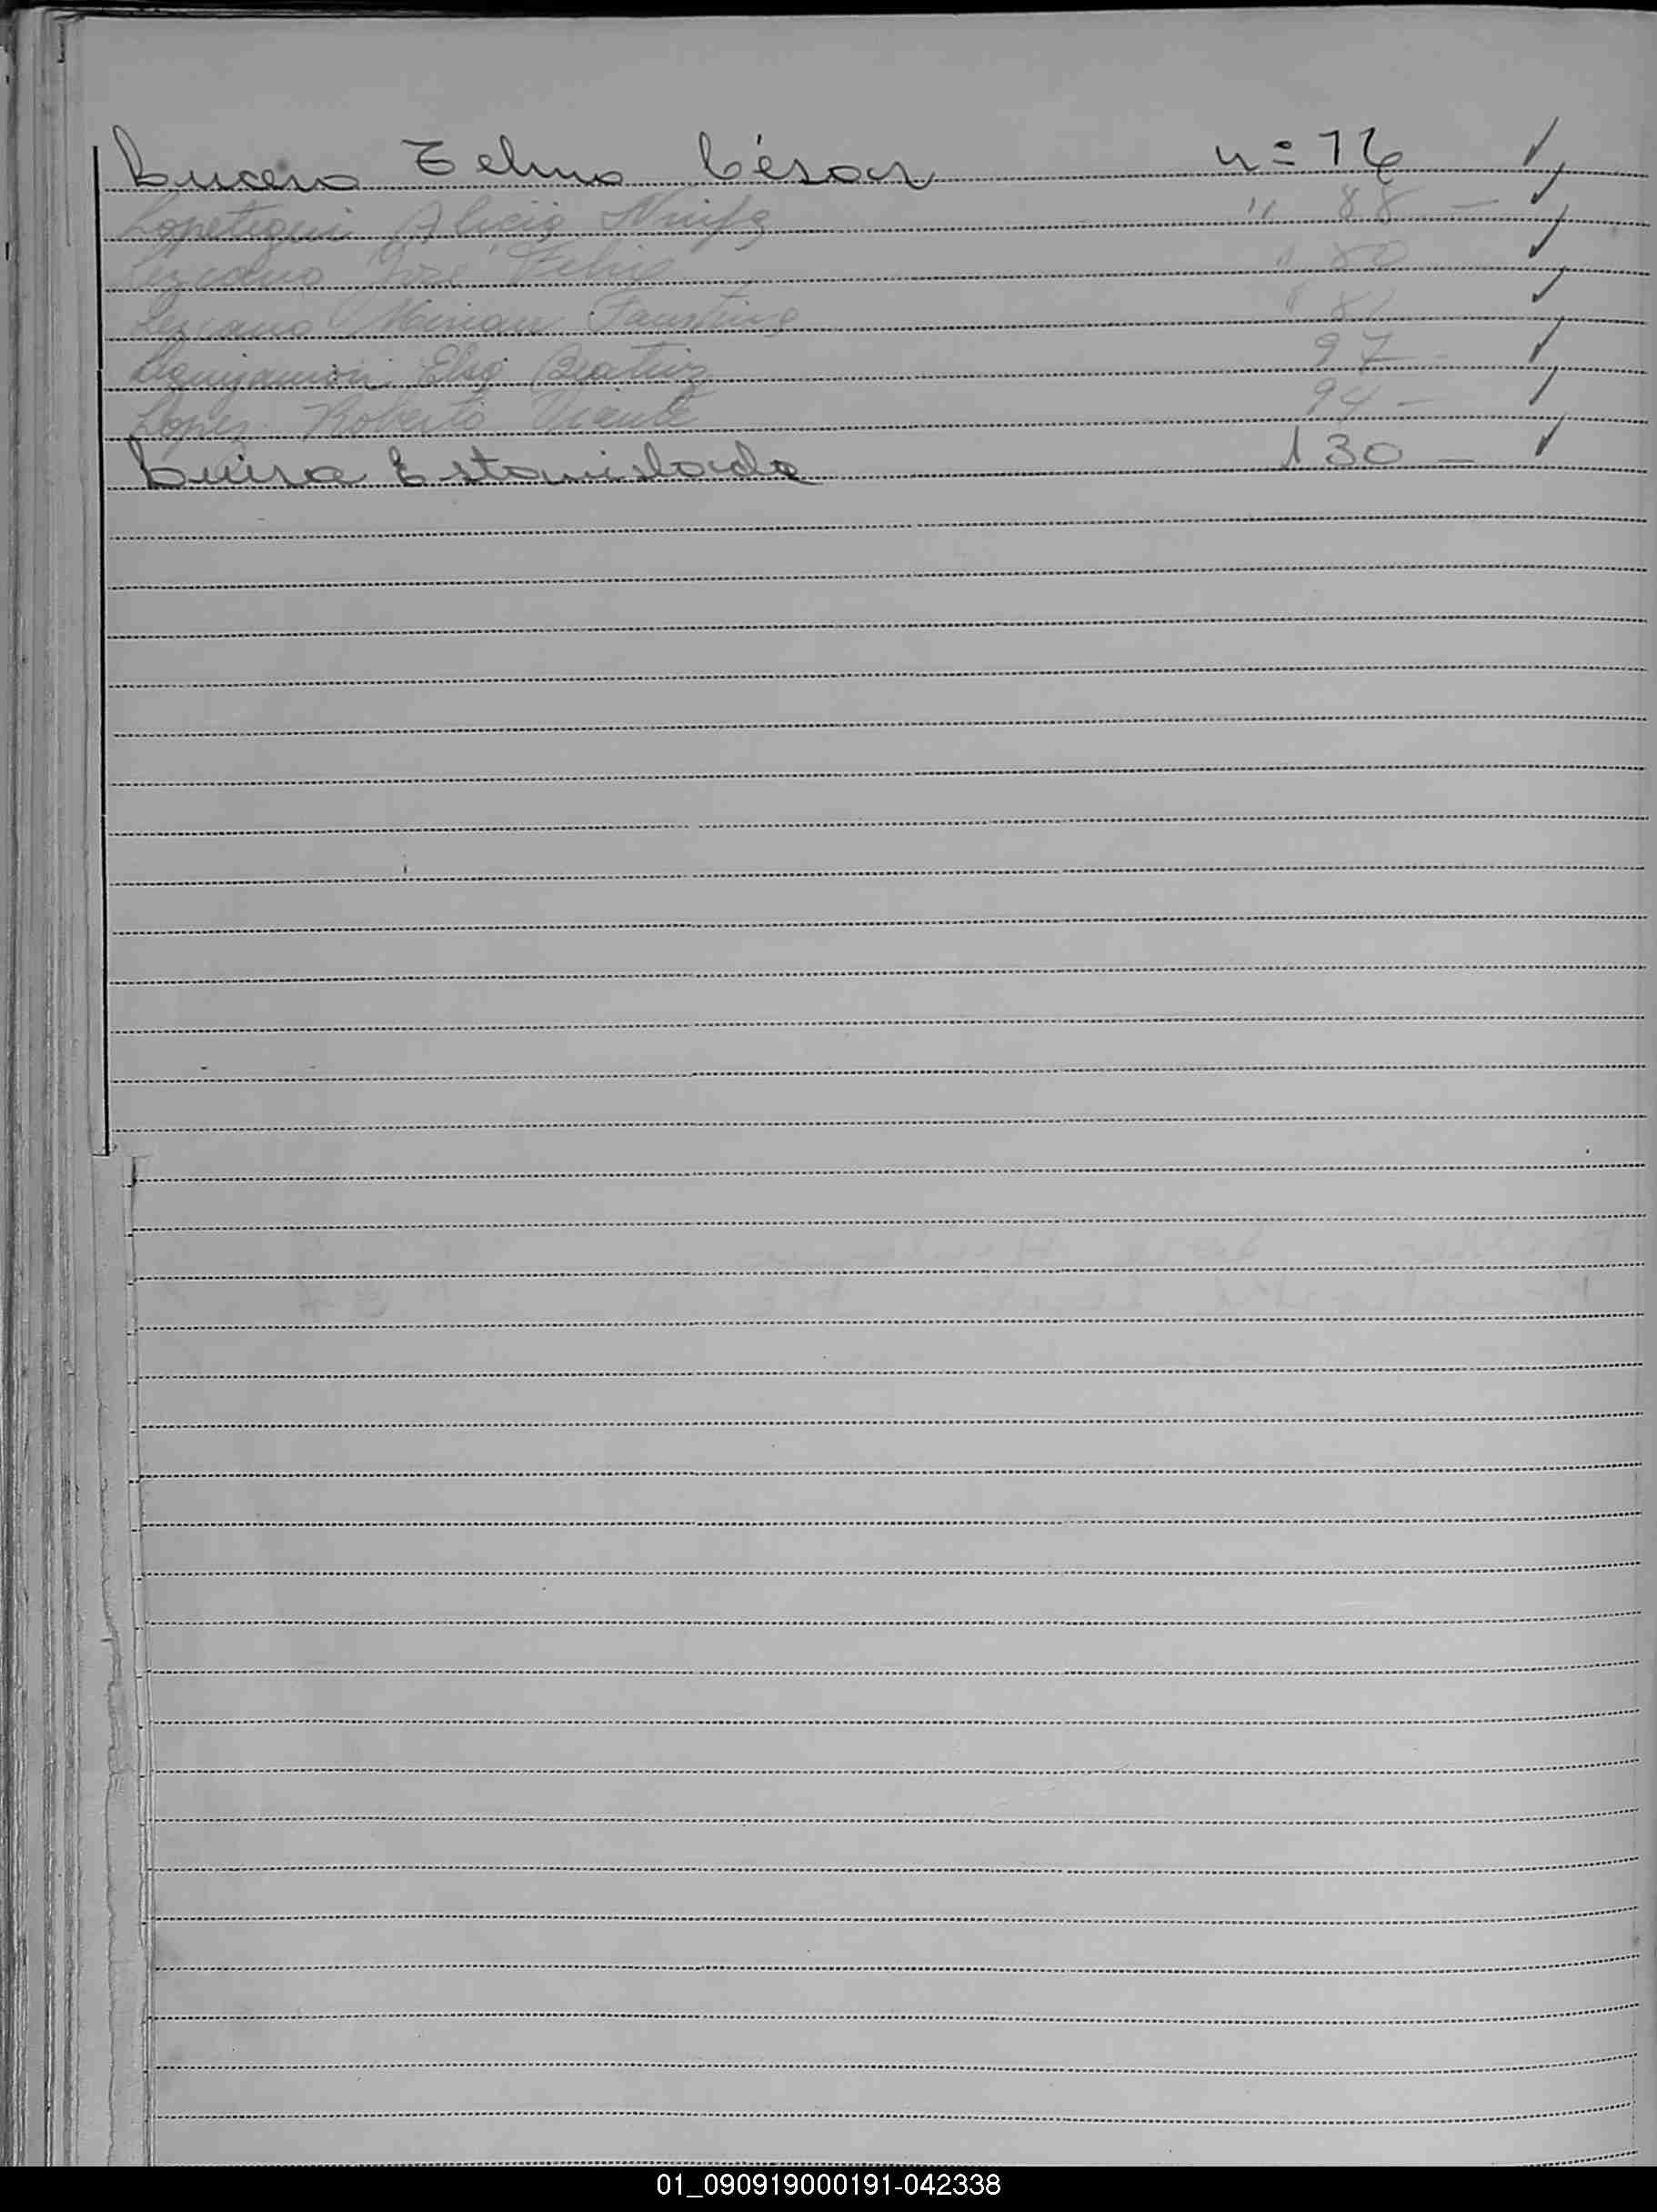 Lucero Telmo César n= 76 ✓
Lopetegui Alicia Ninfa " 88 — ✓
Lezcano José Feliz " 80 ✓
Lezcano Mirian Faustina " 81 ✓
Elsa Beatriz 97 — ✓
Lopez Roberto Vicente 94 — ✓
Luisa Estanislada 130 — ✓
01_090919000191-042338